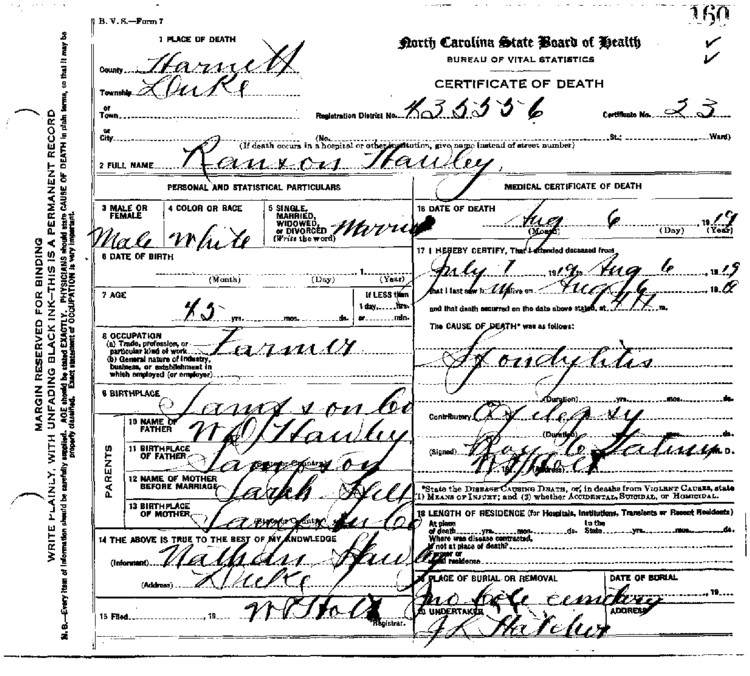 160
B. V. S.—Form 7
1 PLACE OF DEATH
County Harnett
Township Duke
or
Town
or
City
North Carolina State Board of Health
BUREAU OF VITAL STATISTICS
CERTIFICATE OF DEATH
Registration District No. 435556 Certificate No. 23
(No. St.; Ward)
(If death occurs in a hospital or other institution, give name instead of street number)
2 FULL NAME Ranson Hawley
PERSONAL AND STATISTICAL PARTICULARS
3 MALE OR FEMALE Male
4 COLOR OR RACE White
5 SINGLE, MARRIED, WIDOWED, or DIVORCED (Write the word) Married
6 DATE OF BIRTH
(Month) (Day) 1 (Year)
7 AGE
45 yrs. mos. ds.
If LESS than 1 day, hrs. or min.
8 OCCUPATION
(a) Trade, profession, or particular kind of work Farmer
(b) General nature of industry, business, or establishment in which employed (or employer)
9 BIRTHPLACE Sampson Co
PARENTS
10 NAME OF FATHER W D Hawley
11 BIRTHPLACE OF FATHER Sampson
12 NAME OF MOTHER BEFORE MARRIAGE Sarah
13 BIRTHPLACE OF MOTHER Sampson Co
14 THE ABOVE IS TRUE TO THE BEST OF MY KNOWLEDGE
(Informant) Nathan
(Address) Duke
15 Filed 19 W P Holt
Registrar.
MEDICAL CERTIFICATE OF DEATH
16 DATE OF DEATH
Aug 6 1919
(Month) (Day) (Year)
17 I HEREBY CERTIFY, That I attended deceased from
July 1 1919 Aug 6 1919
that I last saw h im alive on Aug 191
and that death occurred on the date above stated, at m.
The CAUSE OF DEATH* was as follows:
Spondylitis
(Duration) yrs. mos. ds.
Contributory Epilepsy
(Duration) yrs. mos. ds.
(Signed) M. D.
W P Holt
*State the DISEASE CAUSING DEATH, or, in deaths from VIOLENT CAUSES, state (1) MEANS OF INJURY; and (2) whether ACCIDENTAL, SUICIDAL, or HOMICIDAL.
18 LENGTH OF RESIDENCE (for Hospitals, Institutions, Transients or Recent Residents)
At place of death yrs. mos. ds. In the State yrs. mos. ds.
Where was disease contracted, if not at place of death?
Former or usual residence
19 PLACE OF BURIAL OR REMOVAL DATE OF BURIAL
cemetery 19
20 UNDERTAKER ADDRESS
J L Hatcher
MARGIN RESERVED FOR BINDING
WRITE PLAINLY, WITH UNFADING BLACK INK—THIS IS A PERMANENT RECORD
N. B.—Every item of information should be carefully supplied. AGE should be stated EXACTLY. PHYSICIANS should state CAUSE OF DEATH in plain terms, so that it may be properly classified. Exact statement of OCCUPATION is very important.